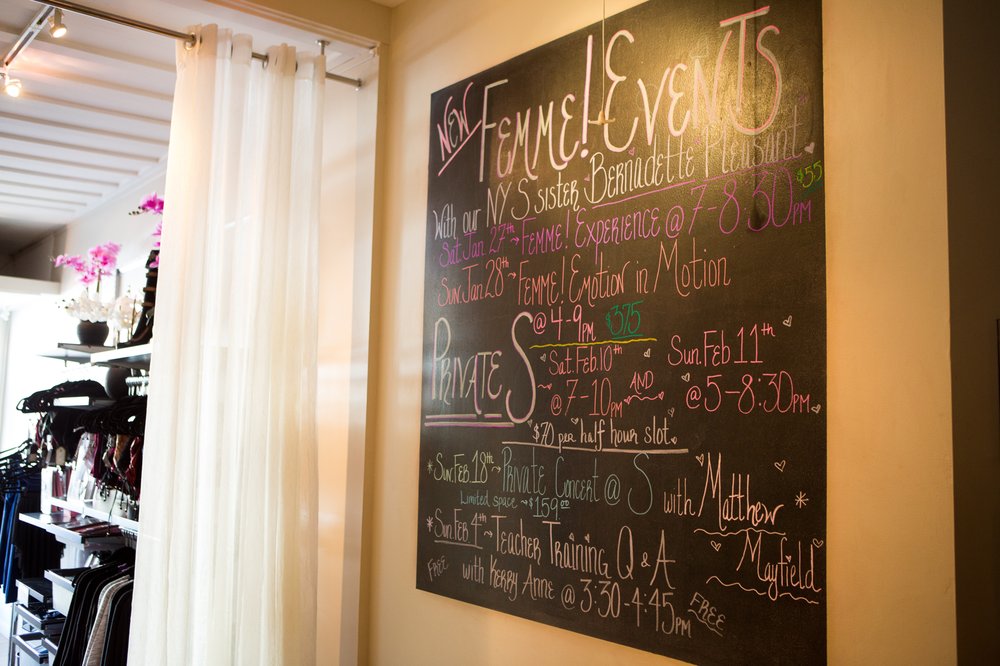 NEW FEMME! EVENTS
With our NY S sister Bernadette Pleasant
Sat. Jan 27th → FEMME! EXPERIENCE @ 7-8:30PM $55
Sun. Jan 28th → FEMME! EMOTION in Motion
@ 4-9PM $375
PRIVATE S
Sat. Feb. 10th @ 7-10pm AND
Sun. Feb 11th @ 5-8:30PM
$70 per half hour slot.
*Sun. Feb. 18th → Private Concert @ S with Matthew Mayfield
Limited space → $159.00
*Sun. Feb 4th → Teacher Training Q & A
FREE with Kerry Anne @ 3:30-4:45PM FREE